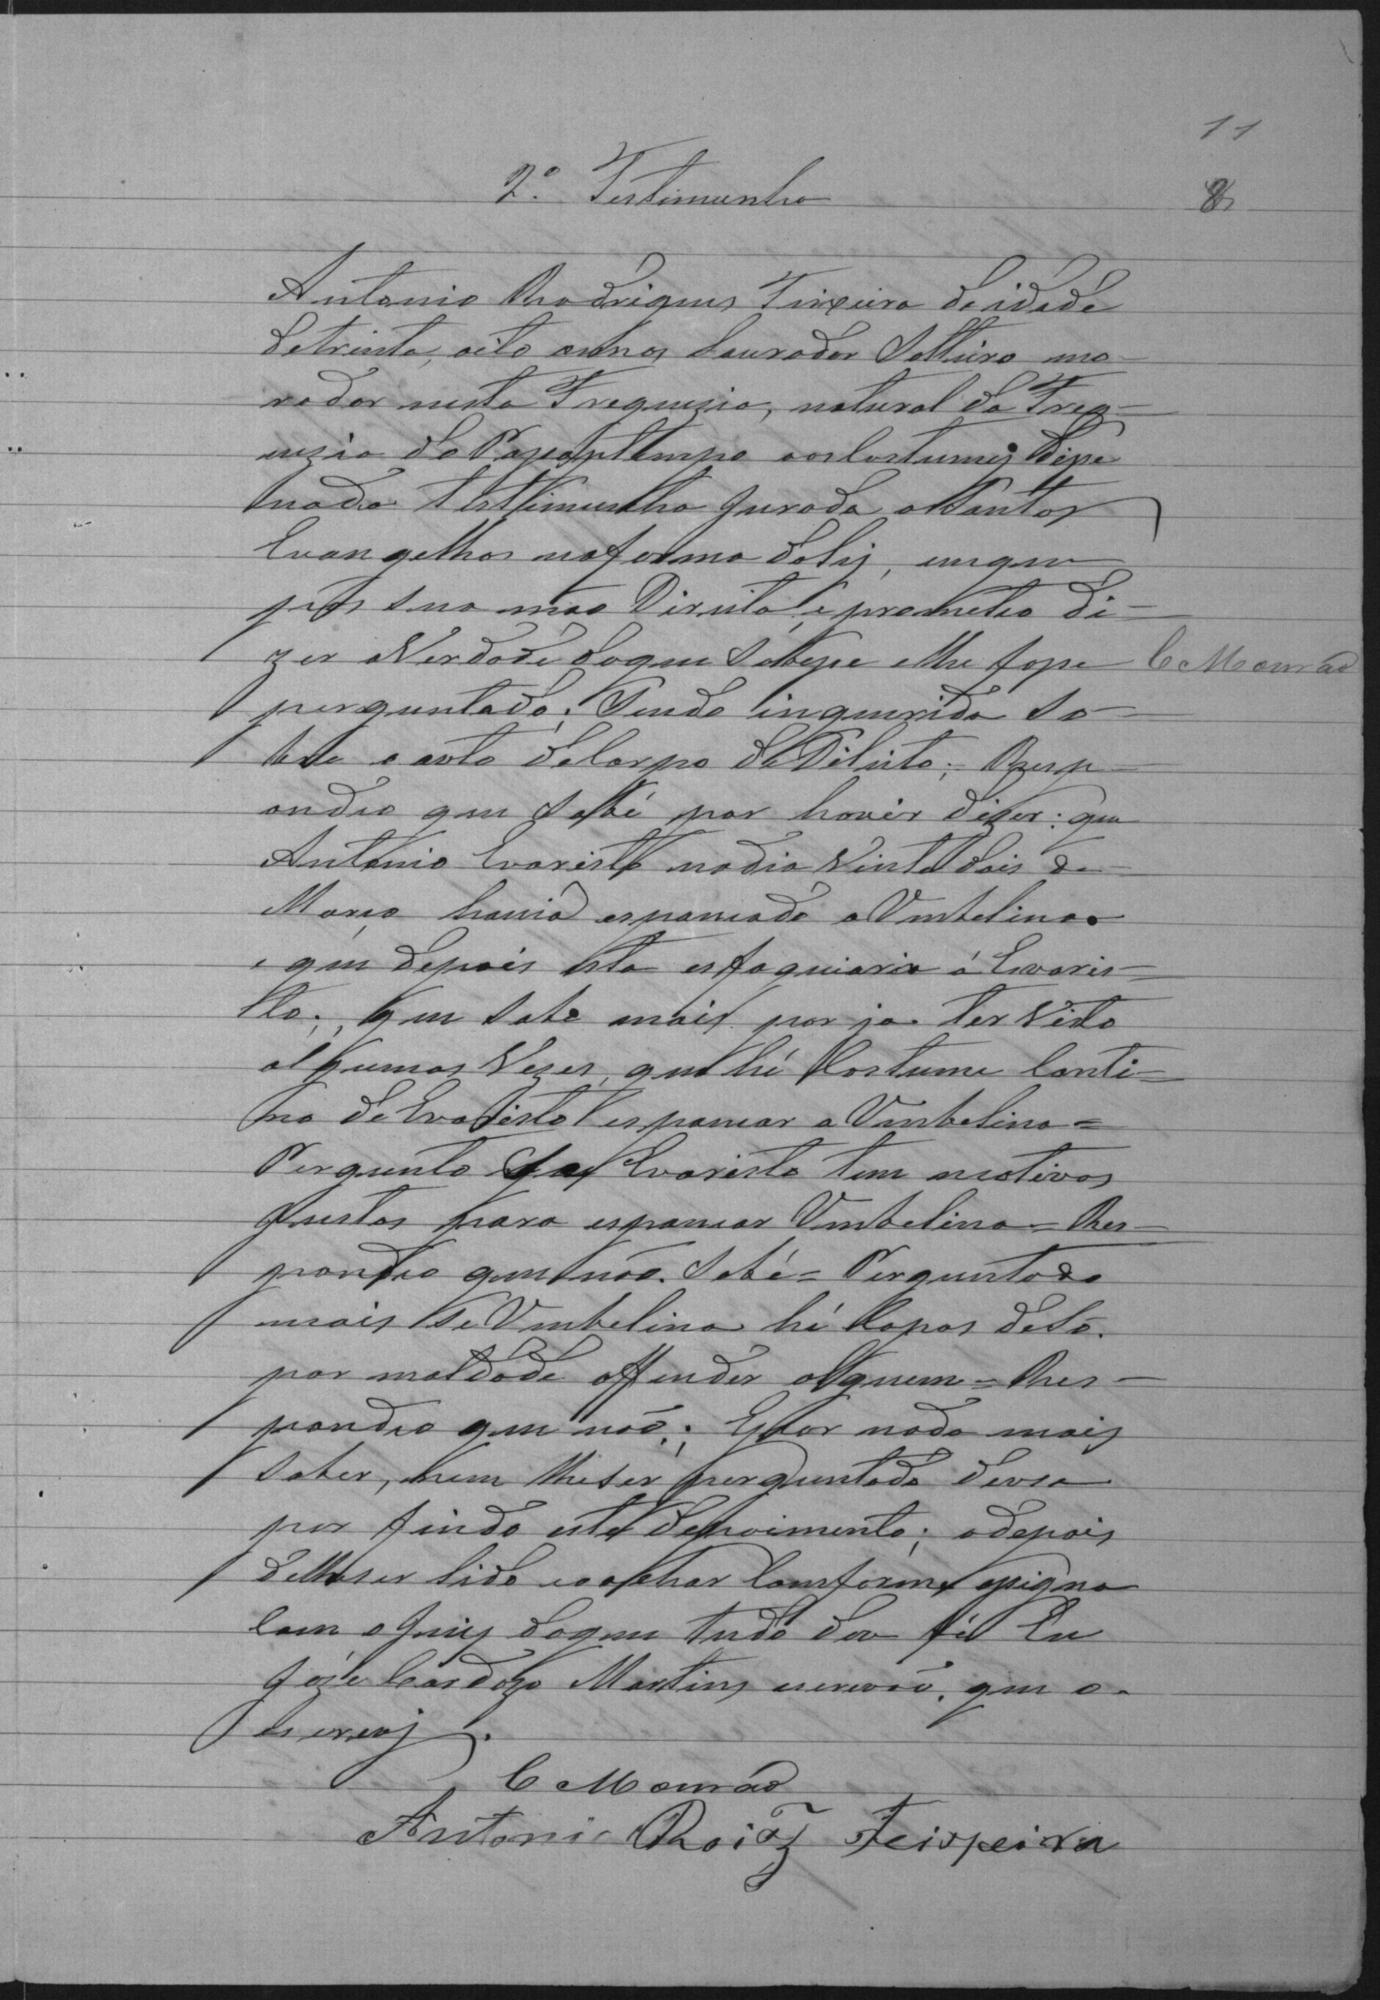 11
2.º Testimunha
8
Antonio Rhodrigues Teixeira de idade
de trinta, oito annos Laurador Solteiro mo-
rador nesta Freguezia, natural da Freg-
uezia de aos Costumes disse
nada Testimunha Jurada aSantos
Evangelhos naforma daley, em que
pos sua mão Direita, e prometeo di-
zer averdade doque Sobesse elhe fosse
C Mourão
perguntado; Sendo inquerida so-
bre o auto deCorpo deDelicto; Resp-
ondeo que Sabé por houvir dizer: que
Antonio Evaristo nodia Vinte dois de
Março havia espancado a Umbelina
e que depois esta esfaquiara á Evaris-
to; que sabe mais por ja ter Visto
algumas Vezes, que hé Costume Conti-
no de Evaristo espancar a Umbelina =
Pergunto Se Evaristo tem motivos
Justos para espancar Umbelina = Res-
pondeo que não Sabé = Perguntado
mais se Umbelina hé Capas deSó
por maldade offender alguem = Res-
pondeo que não; Epor nada mais
saber, nem lheser perguntado deuse
por findo este depoimento; edepois
delheser lido eoachar Conforme assigna
Com oJuiz doque tudo dou fé Eu
Joze Cardozo Martins escrivão, que o
escrevj.
C Mourão
Antonio Roiz Teixeira